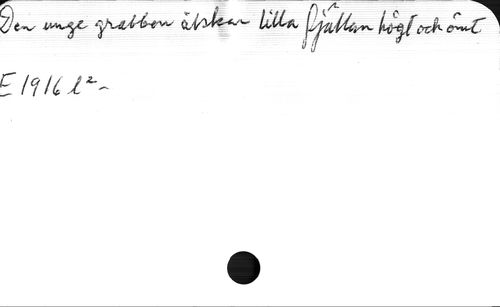 Den unge grabben älskar lilla fjällan högt och ömt
E 1916 l²-